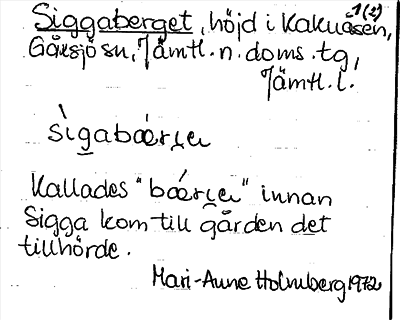 1(2)
Siggaberget, höjd i Kakuåsen,
Gåxsjö sn, Jämtl. n. doms. tg,
Jämtl. l.
Kallades "bǽrʟ̥eı" innan
Sigga kom till gården det
tillhörde.
Mari-Anne Holmberg 1972